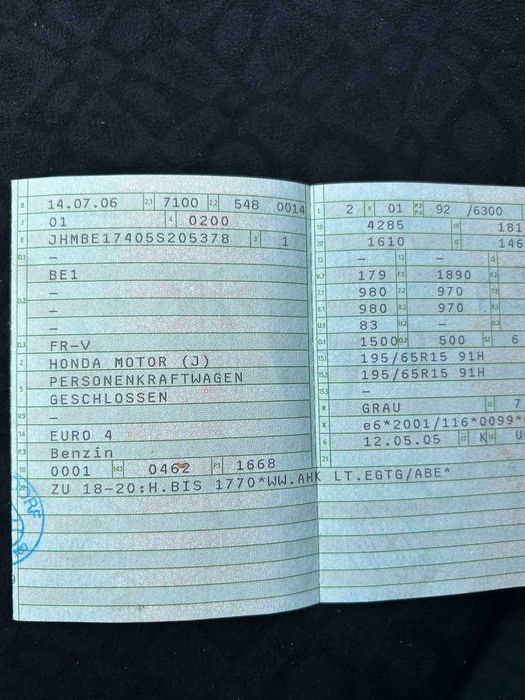 B 14.07.06 2.1 7100 2.2 548 0014
J 01 4 0200
E JHMBE17405S205378 3 1
D.1 –
BE1
D.2 –
–
D.3 FR–V
2 HONDA MOTOR (J)
5 PERSONENKRAFTWAGEN
GESCHLOSSEN
V.9 –
14 EURO 4
P.3 Benzin
10 0001 14.1 0462 P.1 1668
ZU 18–20:H.BIS 1770*WW.AHK LT.EGTG/ABE*
L 2 9 01 P.2 P.4 92 /6300
18 4285 19 181
20 1610 G 146
12 – 13 – Q
V.7 179 F.1 1890
7.1 980 7.2 970
8.1 980 8.2 970
U.1 83 U.2 –
O.1 1500 O.2 500 S.1 6
15.1 195/65R15 91H
15.2 195/65R15 91H
15.3 –
R GRAU 11 7
K e6*2001/116*0099*
6 12.05.05 17 K 16 U
21